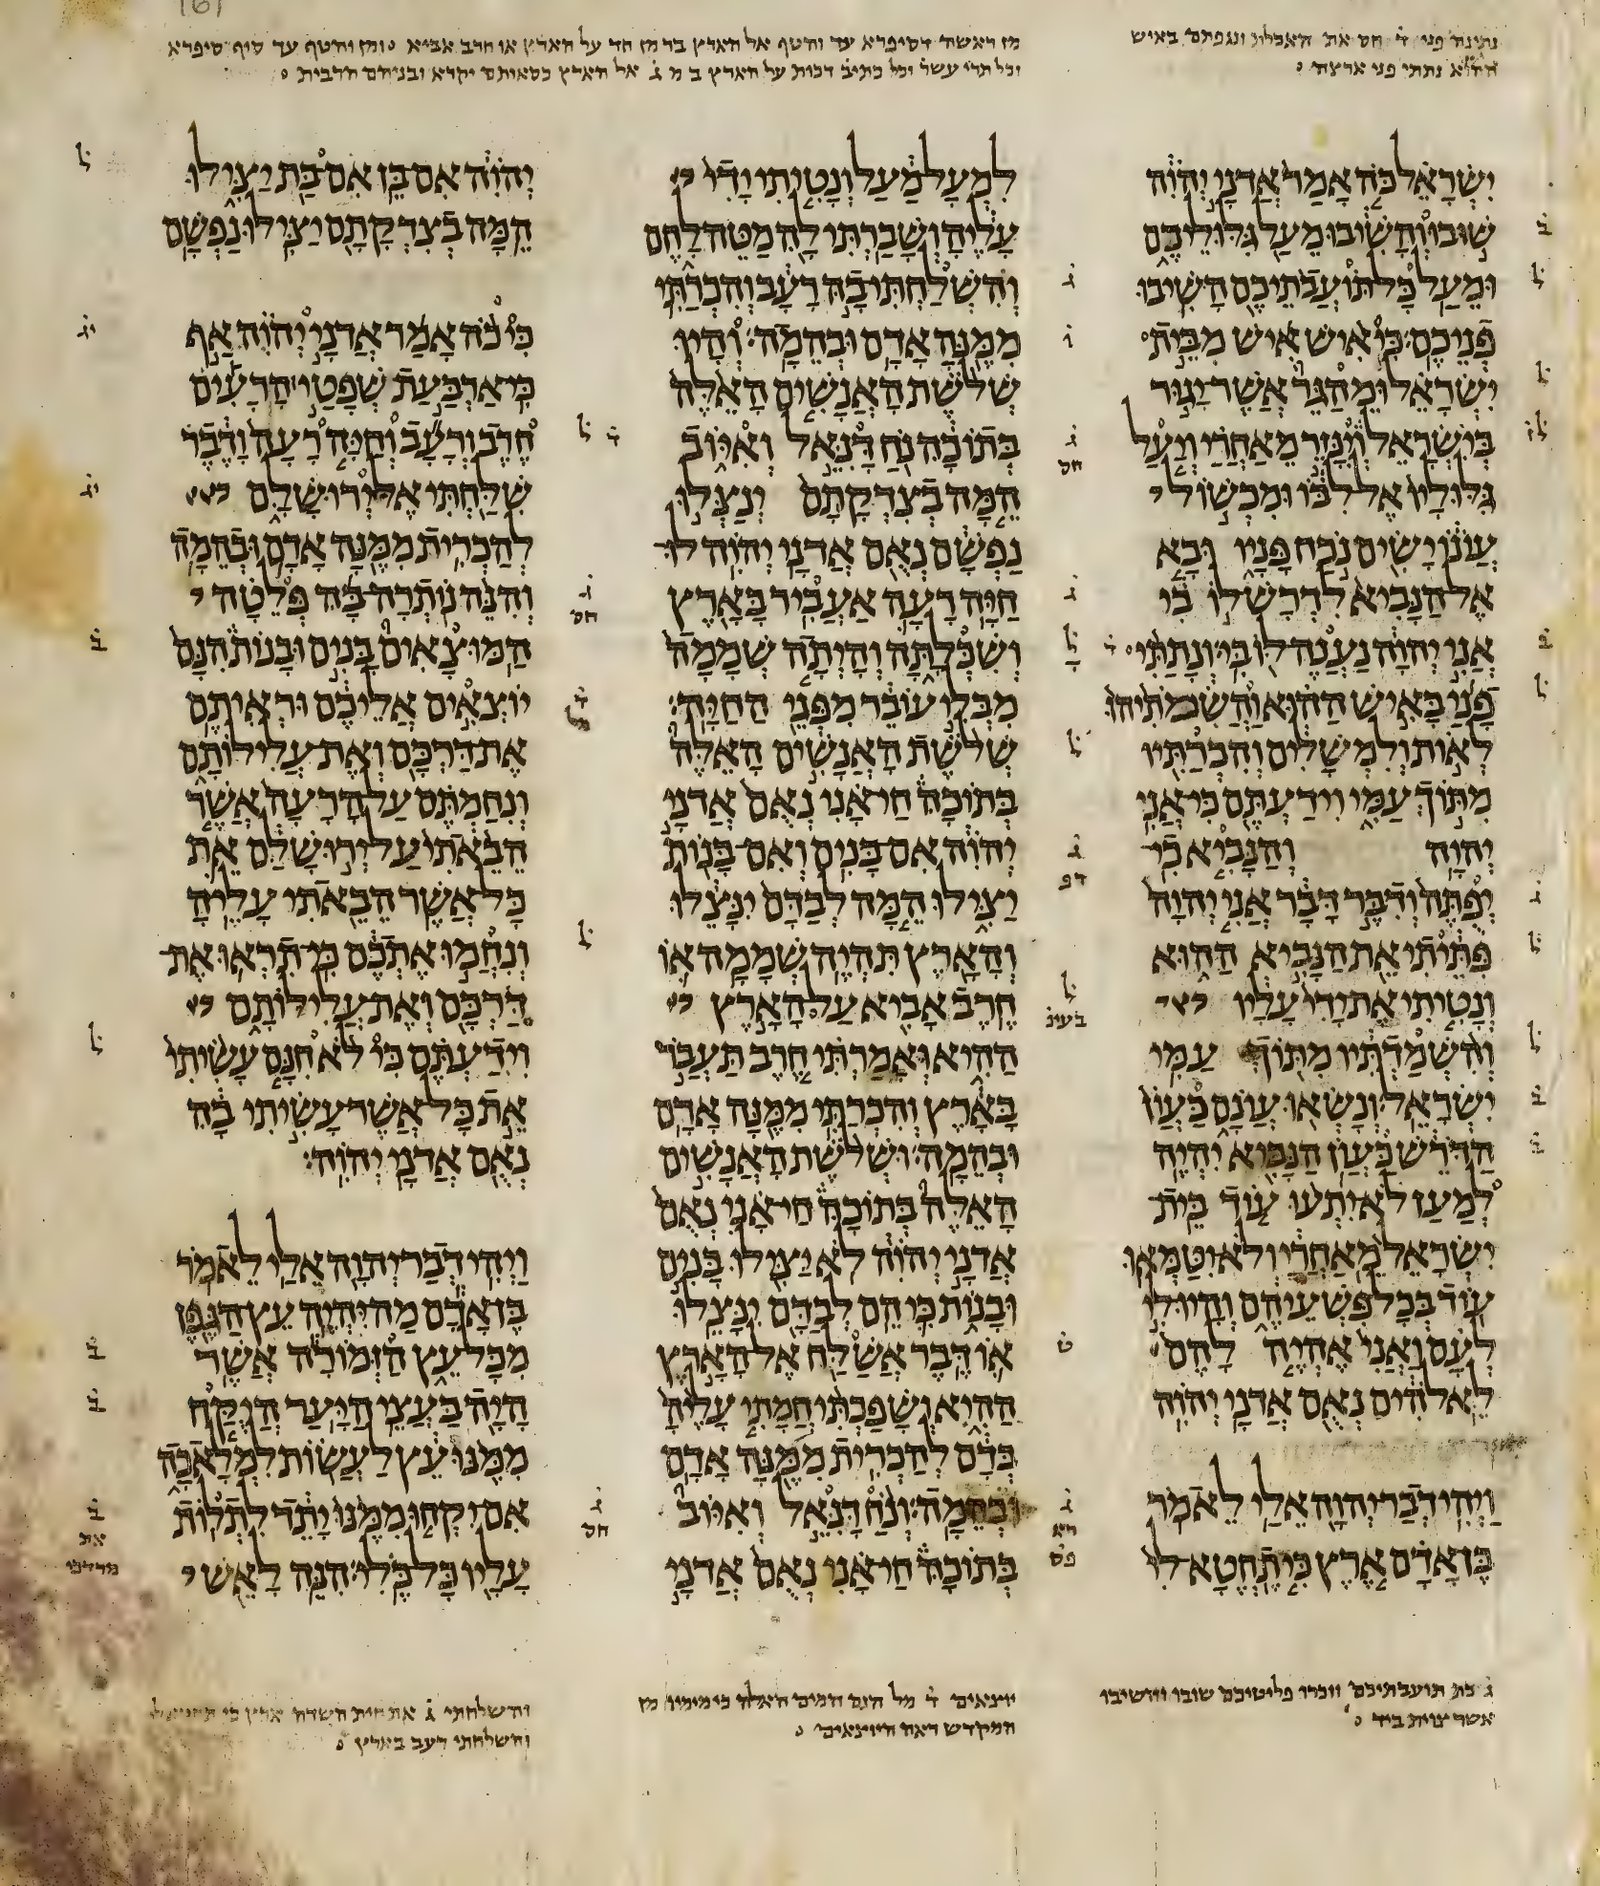 נתינת פני ד חס את האכלת ונגפתם באיש
ההוא נתתי פני ארצה
מן ראשה דסיפרא עד וחטף אל הארץ בר מן חד על הארץ או חרב אביא ומן וחטף עד סוף סיפרא
וכל תרי עשר וכל כתיב דכות על הארץ ב מ ג אל הארץ
ישראל כה אמר אדני יהוה
שובו והשיבו מעל גלוליכם
ומעל כל תועבתיכם השיבו
פניכם כי איש איש מבית
ישראל ומהגר אשר יגור
בישראל וינזר מאחרי ויעל
גלוליו אל לבו ומכשול
עונו ישים נכח פניו ובא
אל הנביא לדרש לו בי
אני יהוה נענה לו בי ונתתי
פני באיש ההוא והשמתיהו
לאות ולמשלים והכרתיו
מתוך עמי וידעתם כי אני
יהוה והנביא כי
יפתה ודבר דבר אני יהוה
פתיתי את הנביא ההוא
ונטיתי את ידי עליו
והשמדתיו מתוך עמי
ישראל ונשאו עונם כעון
הדרש כעון הנביא יהיה
למען לא יתעו עוד בית
ישראל מאחרי ולא יטמאו
עוד בכל פשעיהם והיו לי
לעם ואני אהיה להם
לאלהים נאם אדני יהוה
ויהי דבר יהוה אלי לאמר
בן אדם ארץ כי תחטא לי
למעל מעל ונטיתי ידי
עליה ושברתי לה מטה לחם
והשלחתי בה רעב והכרתי
ממנה אדם ובהמה והיו
שלשת האנשים האלה
בתוכה נח דנאל ואיוב
המה בצדקתם ינצלו
נפשם נאם אדני יהוה לו
חיה רעה אעביר בארץ
ושכלתה והיתה שממה
מבלי עובר מפני החיה
שלשת האנשים האלה
בתוכה חי אני נאם אדני
יהוה אם בנים ואם בנות
יצילו המה לבדם ינצלו
והארץ תהיה שממה או
חרב אביא על הארץ
ההיא ואמרתי חרב תעבר
בארץ והכרתי ממנה אדם
ובהמה ושלשת האנשים
האלה בתוכה חי אני נאם
אדני יהוה לא יצילו בנים
ובנות כי הם לבדם ינצלו
או דבר אשלח אל הארץ
ההיא ושפכתי חמתי עליה
בדם להכרית ממנה אדם
ובהמה ונח דנאל ואיוב
בתוכה חי אני נאם אדני
יהוה אם בן אם בת יצילו
המה בצדקתם יצילו נפשם
כי כה אמר אדני יהוה אף
כי ארבעת שפטי הרעים
חרב ורעב וחיה רעה ודבר
שלחתי אל ירושלם
להכרית ממנה אדם ובהמה
והנה נותרה בה פלטה
המוצאים בנים ובנות הנם
יוצאים אליכם וראיתם
את דרכם ואת עלילותם
ונחמתם על הרעה אשר
הבאתי על ירושלם את
כל אשר הבאתי עליה
ונחמו אתכם כי תראו את
דרכם ואת עלילותם
וידעתם כי לא חנם עשיתי
את כל אשר עשיתי בה
נאם אדני יהוה
ויהי דבר יהוה אלי לאמר
בן אדם מה יהיה עץ הגפן
מכל עץ הזמורה אשר
היה בעצי היער היקח
ממנו עץ לעשות למלאכה
אם יקחו ממנו יתד לתלות
עליו כל כלי הנה לאש
ג כת תועבתיכם וזכרו פליטיכם שובו והשיבו
אשר צוית ביד
יוצאים ד מל הנם חמים האלה כימימיו מן
המקדש ראה היוצאים
והשלחתי ג את חית השדה ארץ כי
והשלחתי רעב בארץ